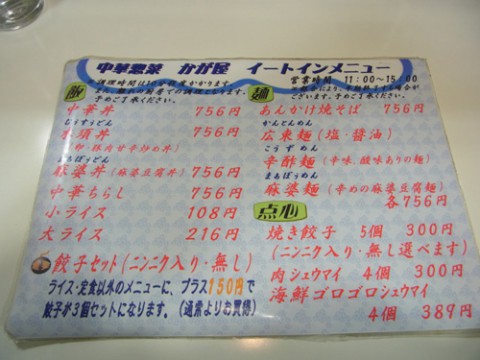 中華惣菜 かが屋 イートインメニュー
営業時間 11:00~15:00
飯
中華丼 756円
むうすうどん
木須丼 756円
(卵・豚肉甘辛炒め丼)
まあぼうどん
麻婆丼(麻婆豆腐丼) 756円
中華ちらし 756円
小ライス 108円
大ライス 216円
餃子セット(ニンニク入り・無し)
ライス・定食以外のメニューに、プラス150円で
餃子が3個セットになります。(通常よりお買得)
麺
あんかけ焼そば 756円
かんとんめん
広東麺(塩・醤油)
辛酢麺(辛味、酸味ありの麺)
まあぼうめん
麻婆麺(辛めの麻婆豆腐麺)
各756円
点心
焼き餃子 5個 300円
(ニンニク入り・無し選べます)
肉シュウマイ 4個 300円
海鮮ゴロゴロシュウマイ
4個 389円